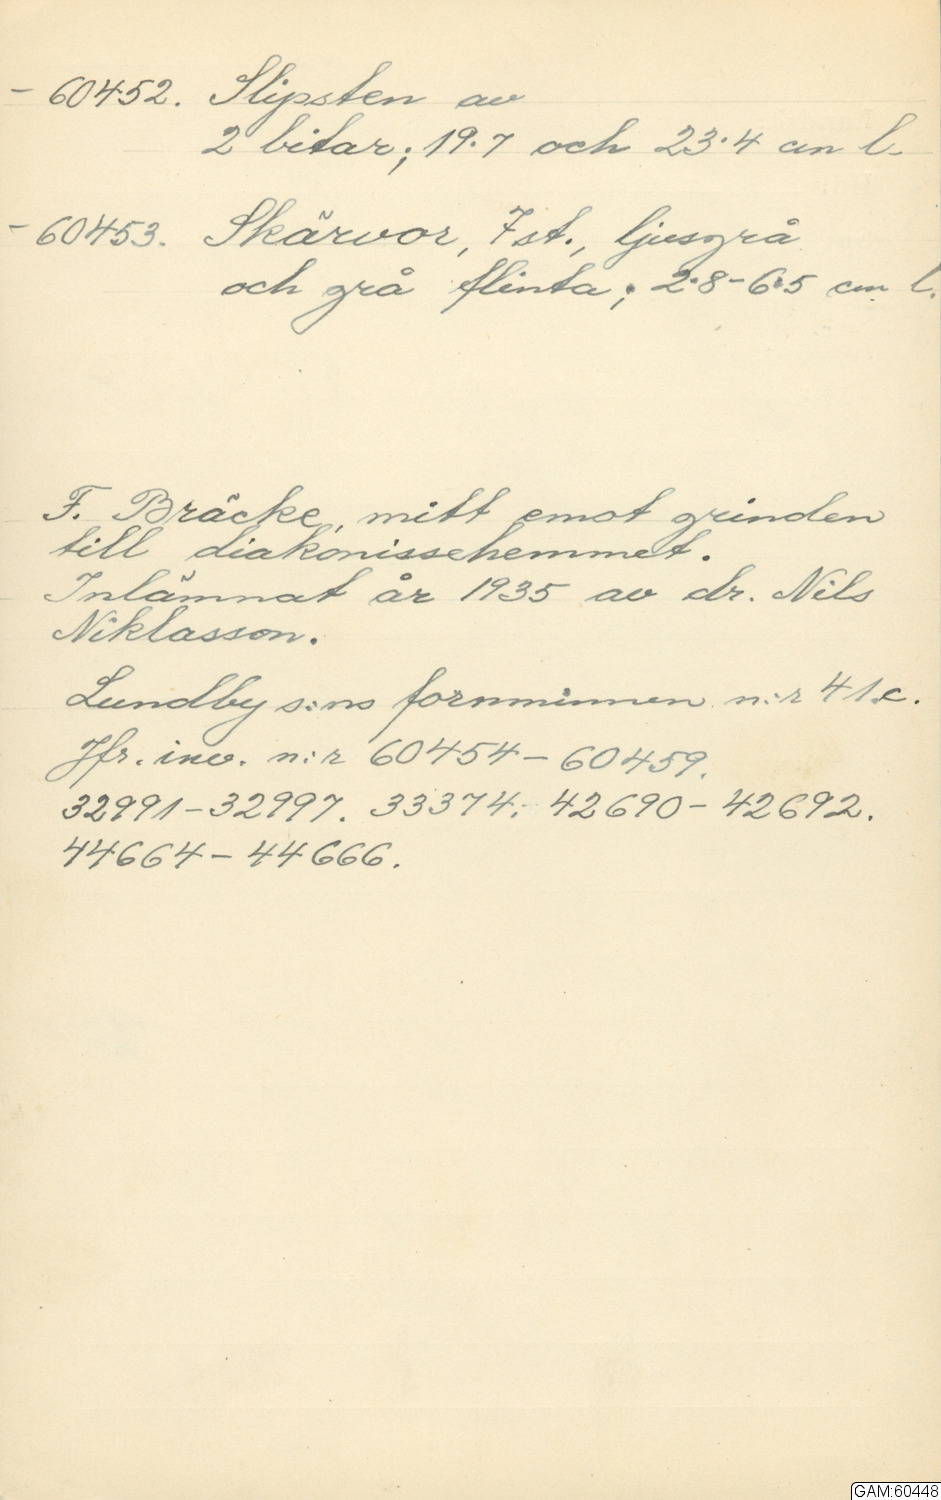 - 60452. Slipsten av
2 bitar; 19.7 och 23.4 cm l.
- 60453. Skärvor, 7 st., ljusgrå
och grå flinta; 2.8-6.5 cm l.
F. Bräcke, mitt emot grinden
till diakonissehemmet.
Inlämnat år 1935 av dr. Nils
Niklasson.
Lundby s:ns fornminnen n:r 41.c.
Jfr. inv. n:r 60454-60459.
32991-32997. 33374. 42690-42692.
44664-44666.
GAM:60448